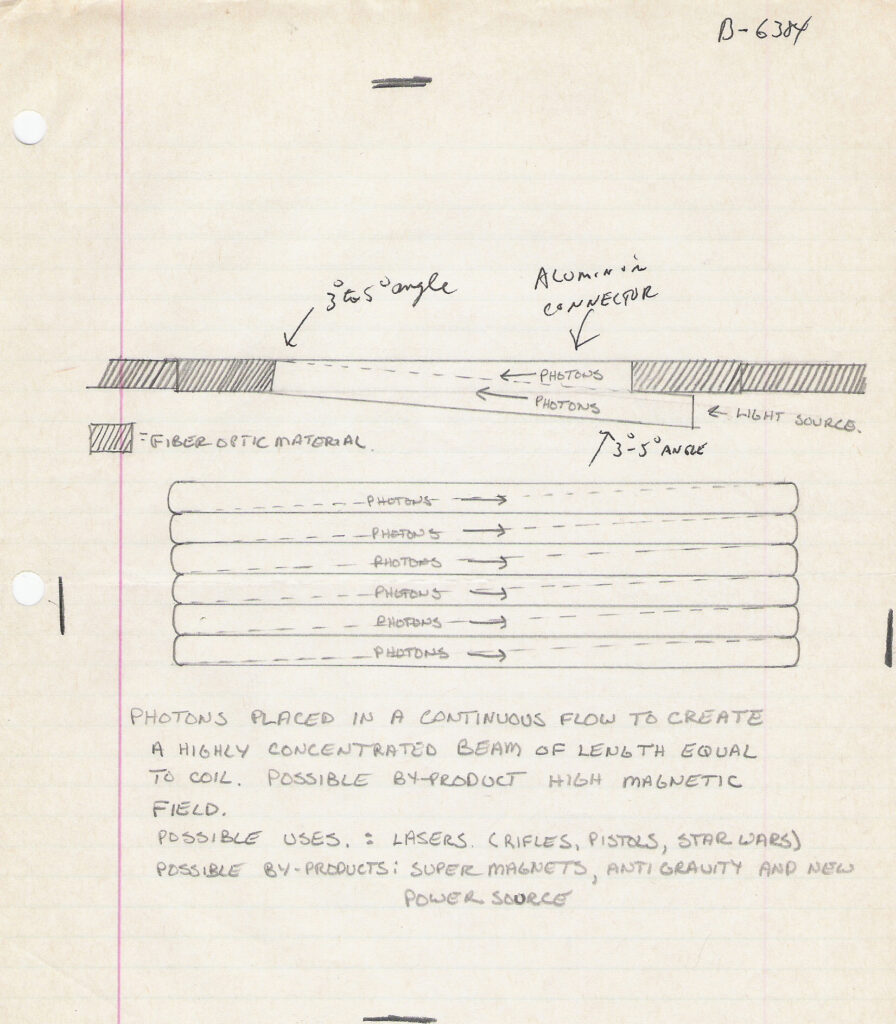 B-6384
3° to 5° angle
ALUMINUM
CONNECTOR
← PHOTONS
← PHOTONS
← LIGHT SOURCE.
= FIBER OPTIC MATERIAL.
3°-5° ANGLE
PHOTONS →
PHOTONS →
PHOTONS →
PHOTONS →
PHOTONS →
PHOTONS →
PHOTONS PLACED IN A CONTINUOUS FLOW TO CREATE
A HIGHLY CONCENTRATED BEAM OF LENGTH EQUAL
TO COIL. POSSIBLE BY-PRODUCT HIGH MAGNETIC
FIELD.
POSSIBLE USES. : LASERS. (RIFLES, PISTOLS, STAR WARS)
POSSIBLE BY-PRODUCTS: SUPER MAGNETS, ANTI GRAVITY AND NEW
POWER SOURCE